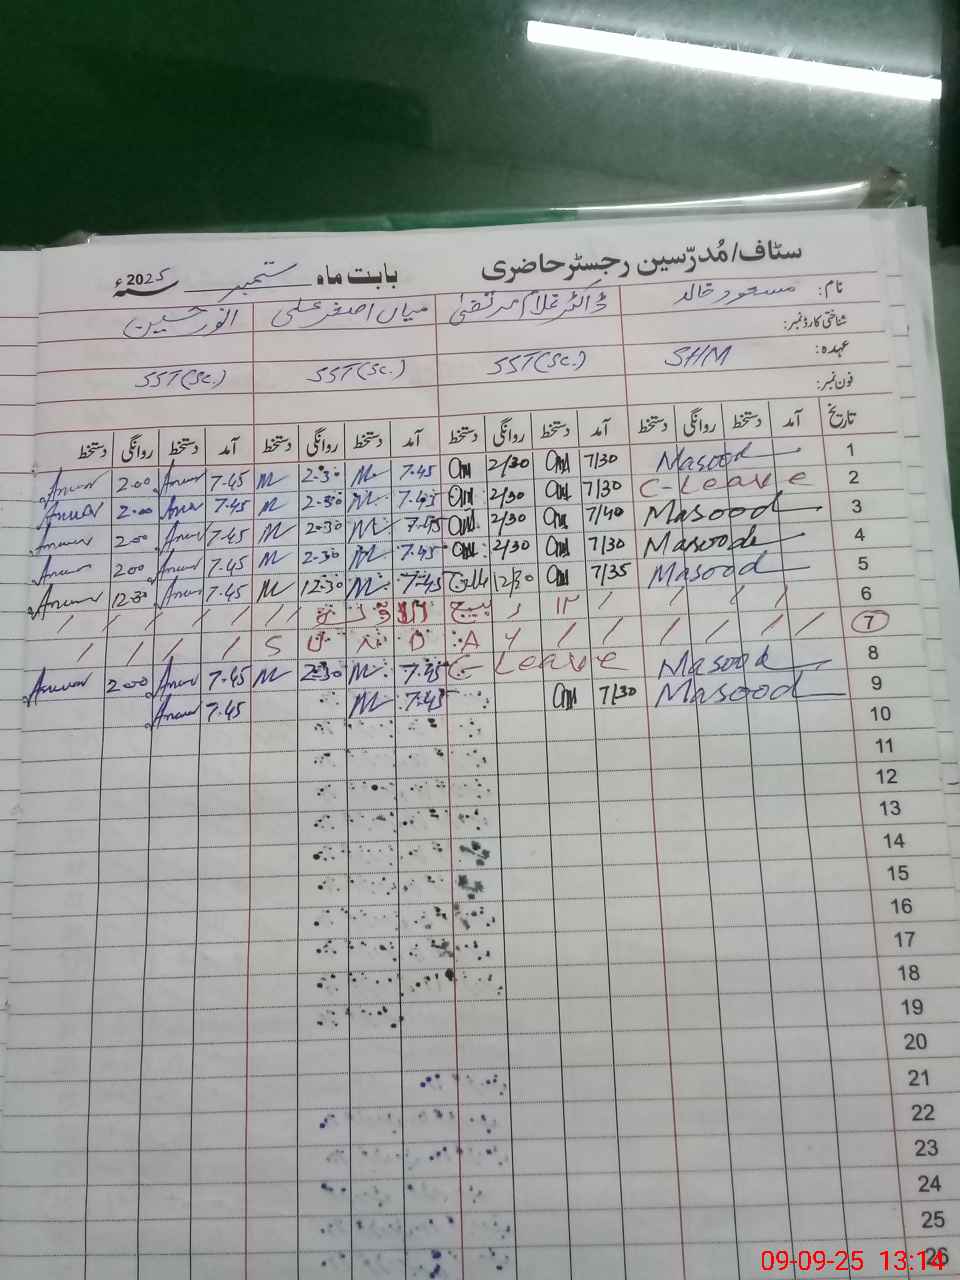 سٹاف/مُدرّسین رجسٹر حاضری بابت ماہ ستمبر 2025 سنہء
نام: مسعود خالد ڈاکٹر غلام مرتضیٰ میاں اصغر علی انور حسین
شناختی کارڈ نمبر:
عہدہ: SHM SST(Sc.) SST(Sc.) SST(Sc.)
فون نمبر:
تاریخ آمد دستخط روانگی دستخط آمد دستخط روانگی دستخط آمد دستخط روانگی دستخط آمد دستخط روانگی دستخط
1 Masood 7/30 2/30 7.45 M 2.30 M 7.45 Anwar 2.00 Anwar
2 C-Leave 7/30 2/30 7.45 M 2.30 M 7.45 Anwar 2.00 Anwar
3 Masood 7/40 2/30 7.45 M 2.30 M 7.45 Anwar 2.00 Anwar
4 Masood 7/30 2/30 7.45 M 2.30 M 7.45 Anwar 2.00 Anwar
5 Masood 7/35 12/30 7.45 M 12.30 M 7.45 Anwar 12.30 Anwar
6 / / / / / ۱۲ ر بیع الاول / / / / / /
7 / / / / / / S U N D A Y / / / /
8 Masood C-Leave 7.45 M 2.30 M 7.45 Anwar 2.00 Anwar
9 Masood 7/30 7.45 M 7.45 Anwar
10
11
12
13
14
15
16
17
18
19
20
21
22
23
24
25
26
09-09-25 13:14